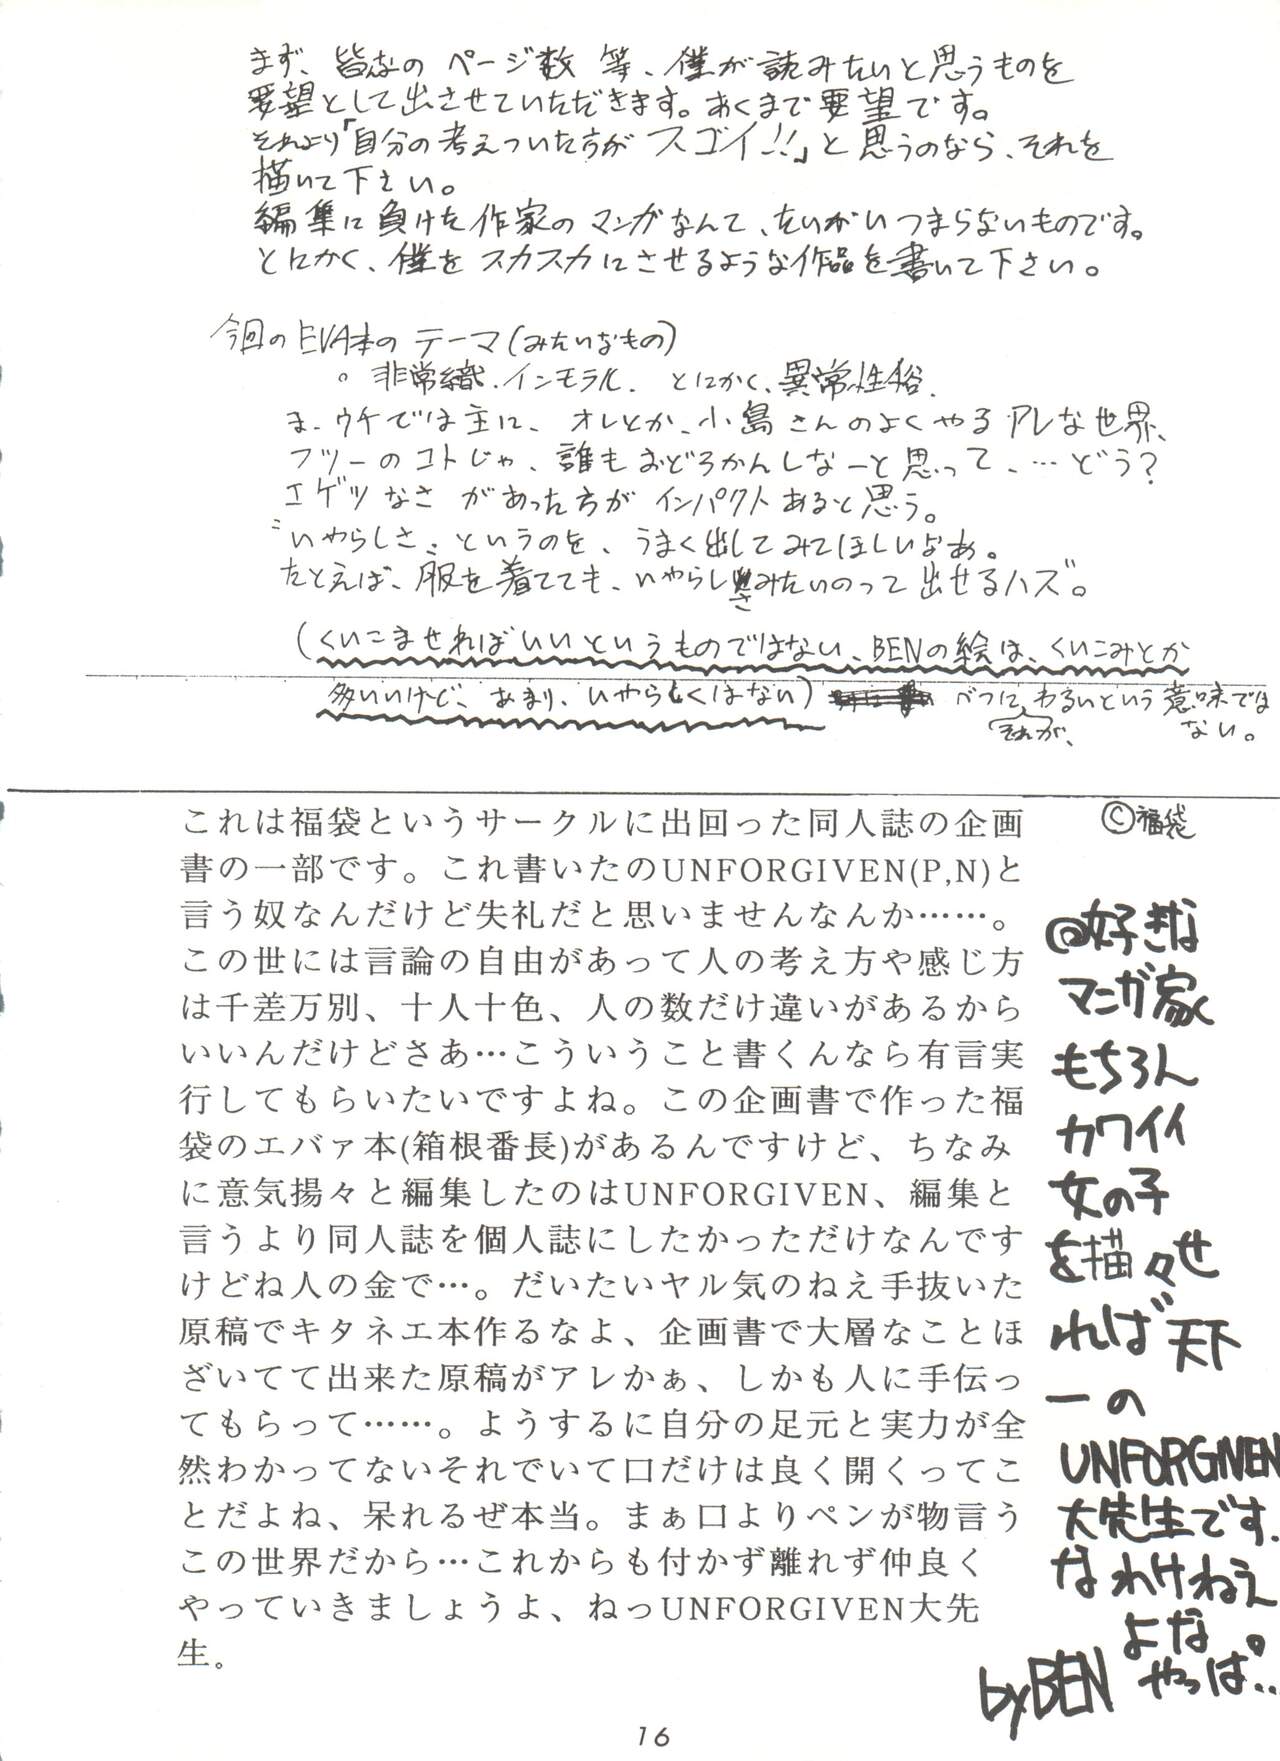 まず、皆なのページ数等、僕が読みたいと思うものを
要望として出させていただきます。あくまで要望です。
それより「自分の考えついた方がスゴイ!!」と思うのなら、それを
描いて下さい。
編集に負けた作家のマンガなんて、たいがいつまらないものです。
とにかく、僕をスカスカにさせるような作品を書いて下さい。
今回のEVA本のテーマ(みたいなもの)
。非常織.インモラル. とにかく、異常性俗.
ま、ウチでは主に、オレとか、小島さんのよくやるアレな世界、
フツーのコトじゃ、誰もおどろかんしなーと思って、…どう?
エゲツなさがあった方がインパクトあると思う。
"いやらしさ"というのを、うまく出してみてほしいなあ。
たとえば、服を着てても、いやらしさみたいのって出せるハズ。
(くいこませればいいというものではない、BENの絵は、くいこみとか
多いいけど、あまり、いやらしくはない) べつに、それが、わるいという意味では
ない。
©福袋
これは福袋というサークルに出回った同人誌の企画
書の一部です。これ書いたのUNFORGIVEN(P,N)と
言う奴なんだけど失礼だと思いませんなんか……。
この世には言論の自由があって人の考え方や感じ方
は千差万別、十人十色、人の数だけ違いがあるから
いいんだけどさあ…こういうこと書くんなら有言実
行してもらいたいですよね。この企画書で作った福
袋のエバァ本(箱根番長)があるんですけど、ちなみ
に意気揚々と編集したのはUNFORGIVEN、編集と
言うより同人誌を個人誌にしたかっただけなんです
けどね人の金で…。だいたいヤル気のねえ手抜いた
原稿でキタネエ本作るなよ、企画書で大層なことほ
ざいてて出来た原稿がアレかぁ、しかも人に手伝っ
てもらって……。ようするに自分の足元と実力が全
然わかってないそれでいて口だけは良く開くってこ
とだよね、呆れるぜ本当。まぁ口よりペンが物言う
この世界だから…これからも付かず離れず仲良く
やっていきましょうよ、ねっUNFORGIVEN大先
生。
@好きな
マンガ家
もちろん
カワイイ
女の子
を描々せ
れば天下
一の
UNFORGIVEN
大先生です.
なわけねえ
よな。
やっぱ…
byBEN
16